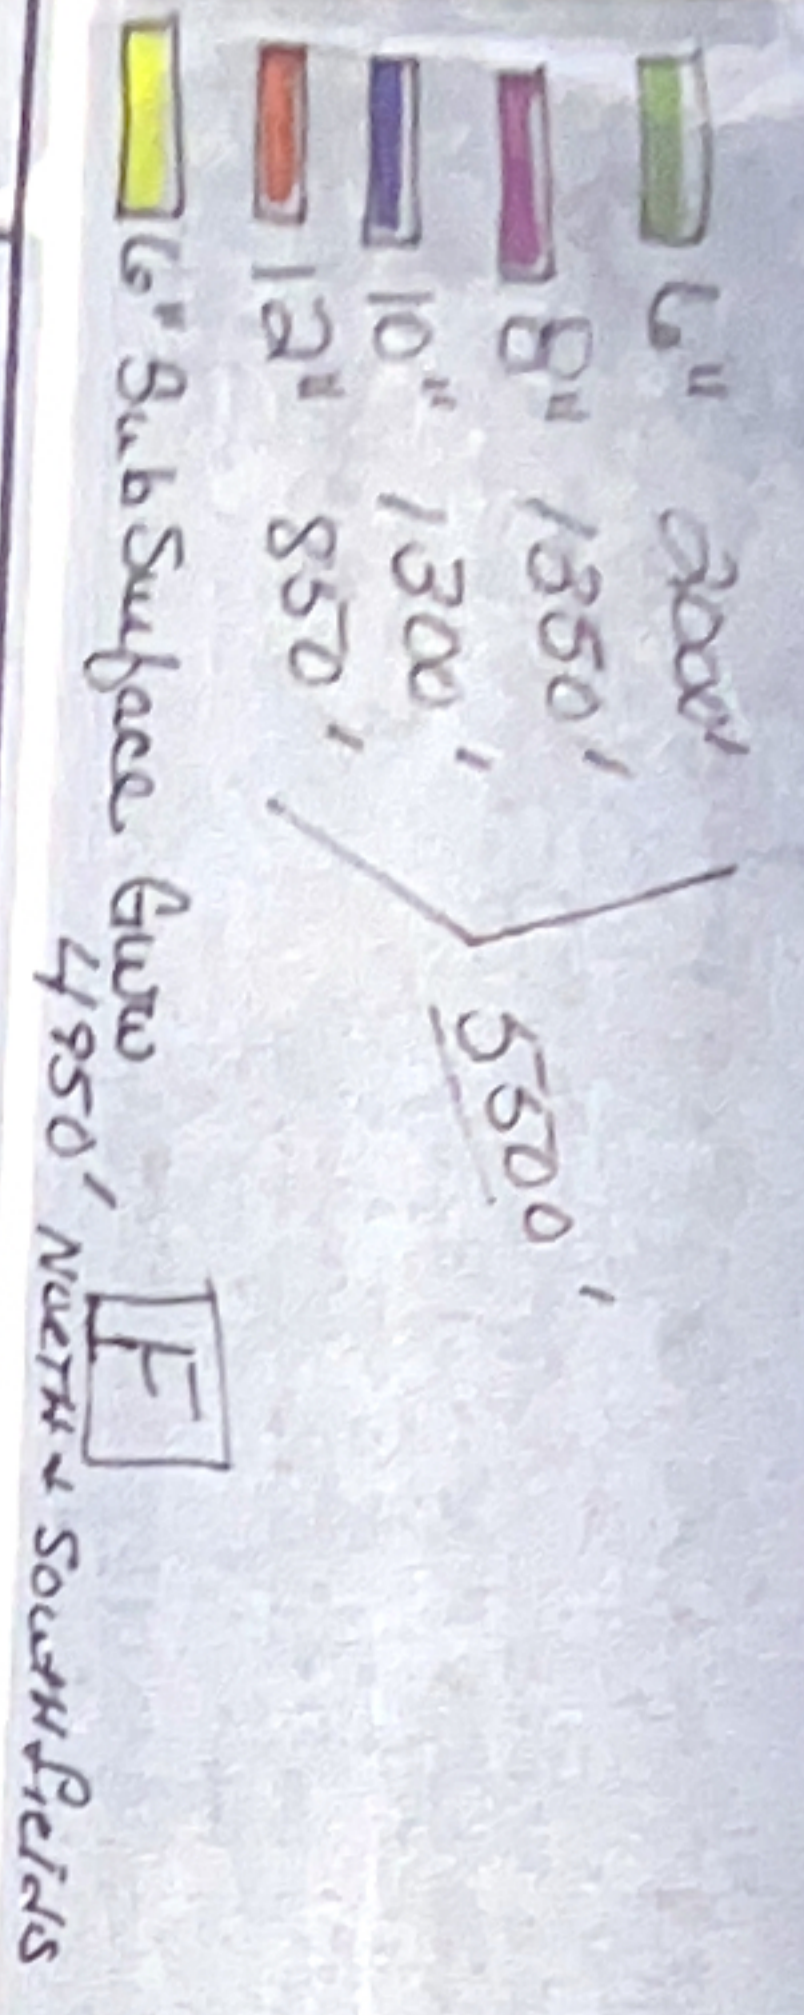 6" 2000'
8" 1350'
10" 1300'
12" 850'
5500'
6" SubSurface
4950' NORTH & SOUTH fields
F